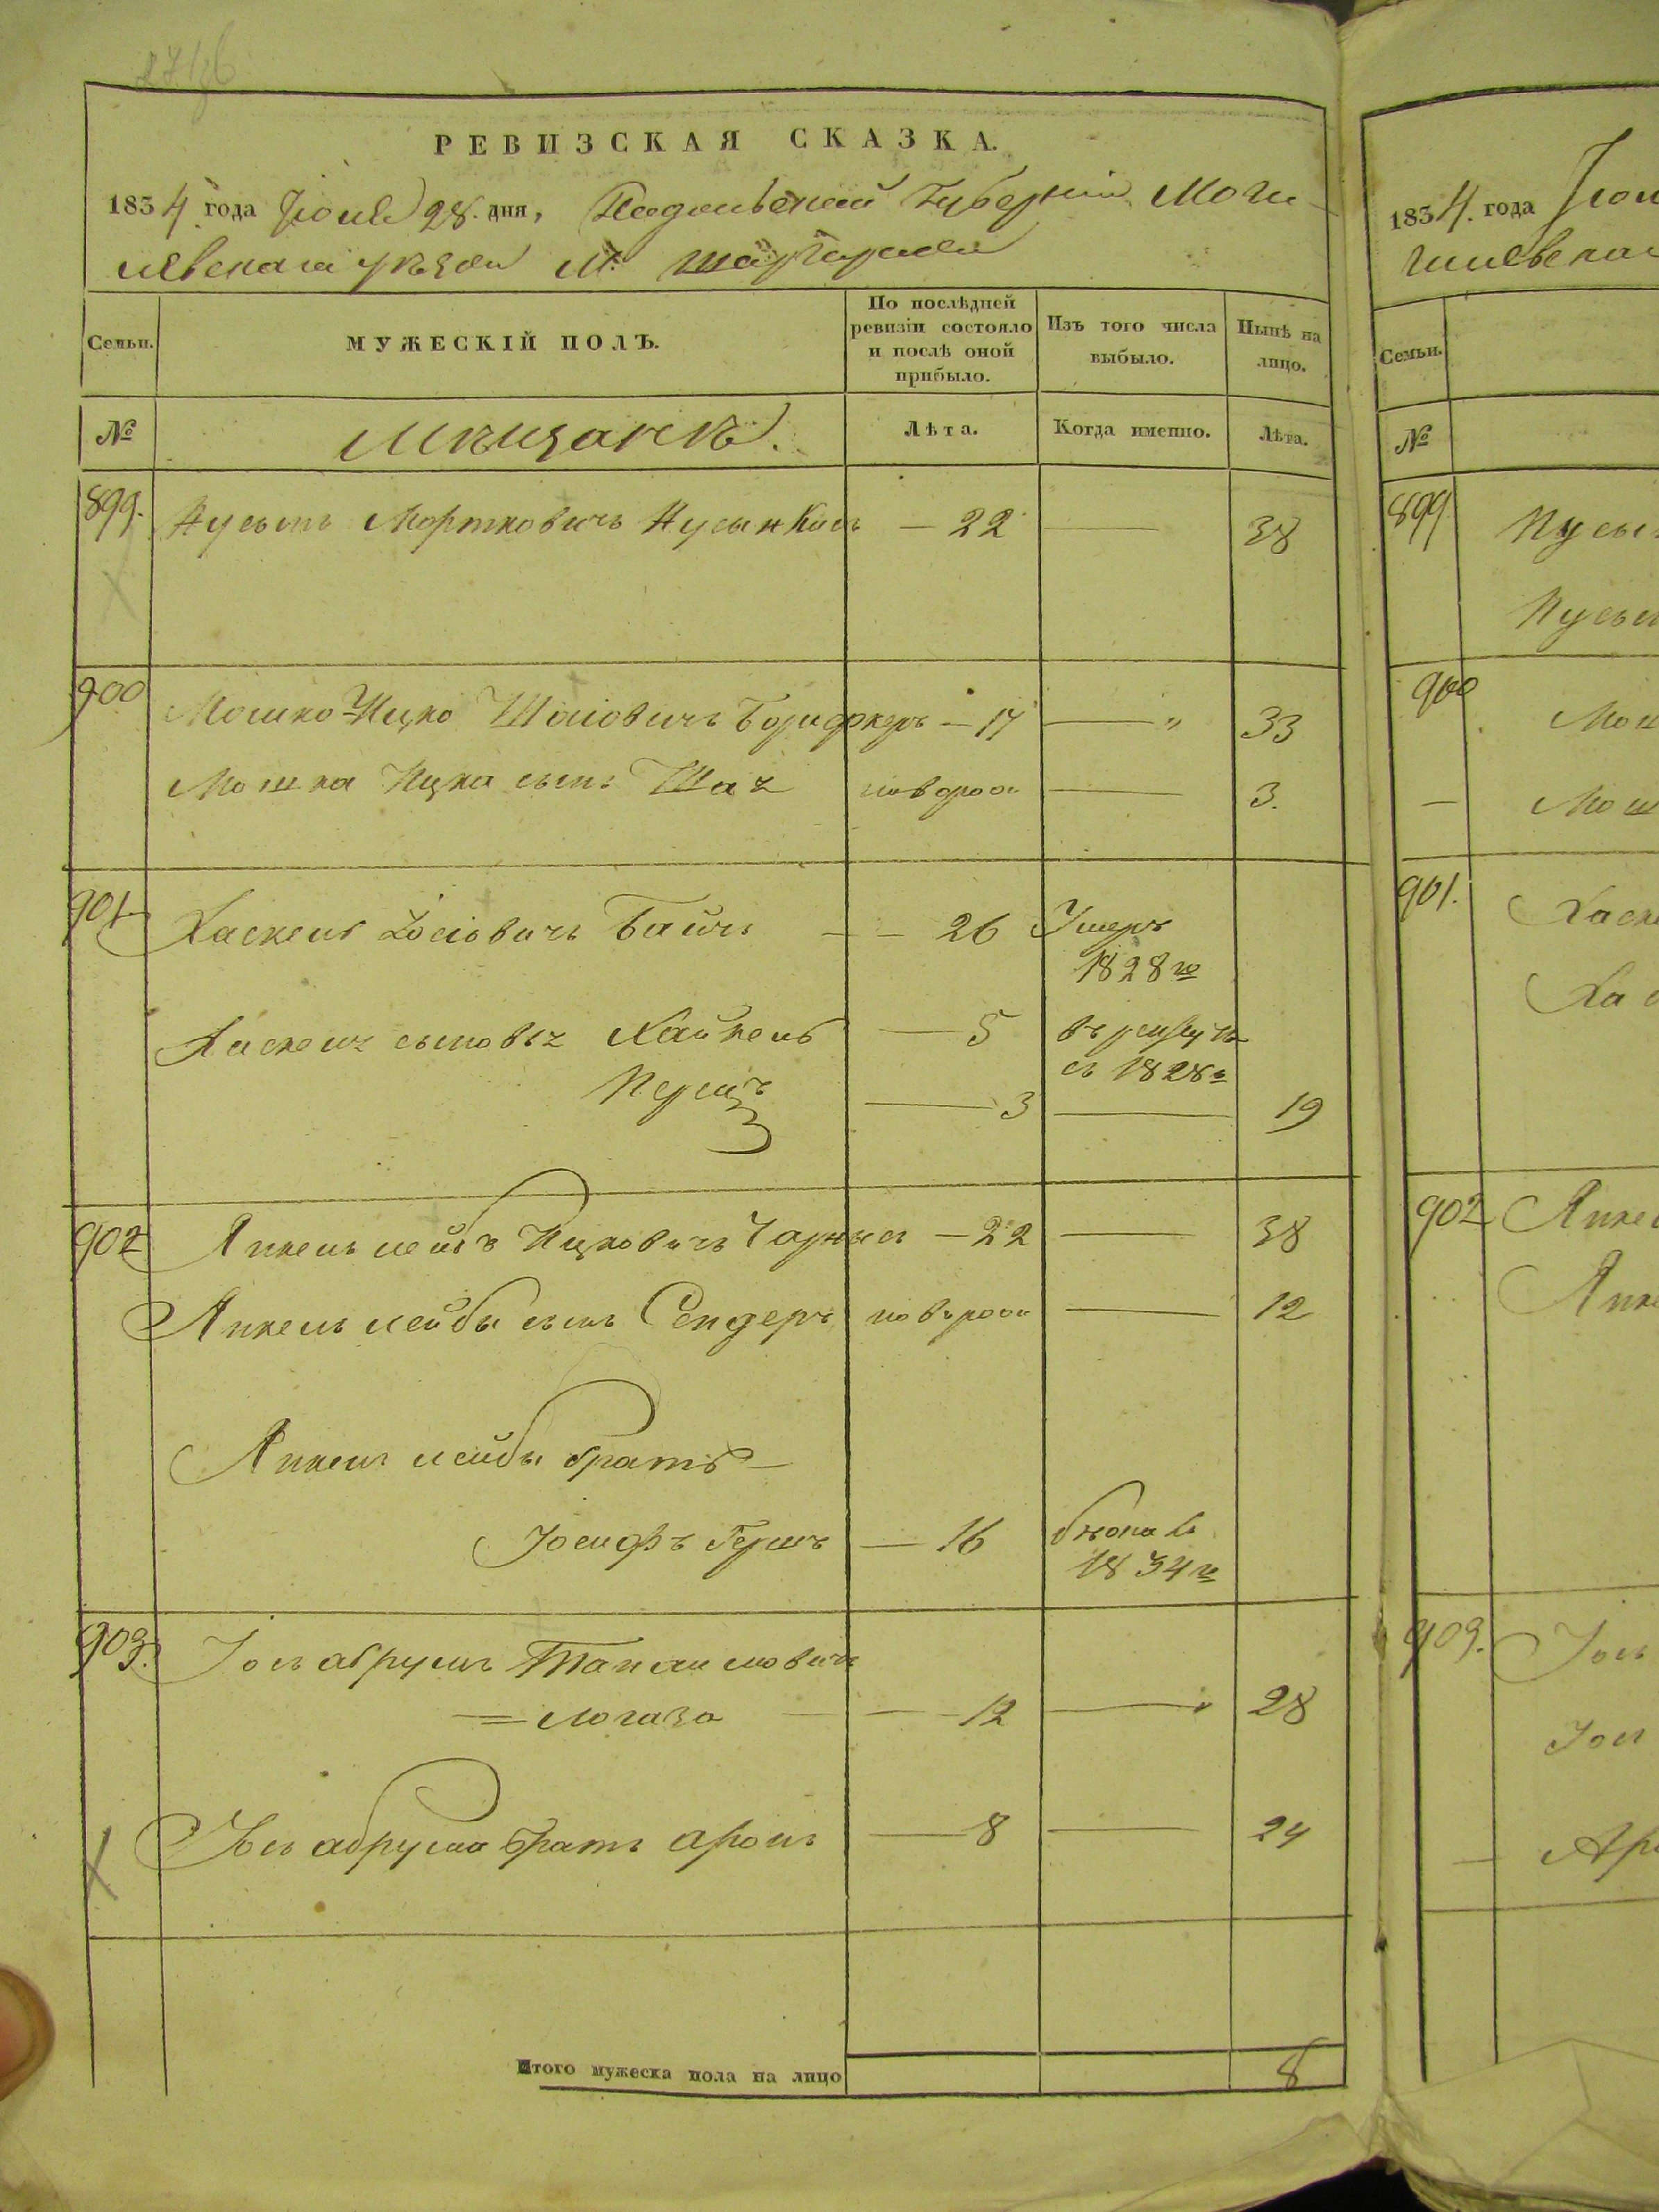 РЕВИЗСКАЯ СКАЗКА.
1834 года Іюня 28 дня, Подольской Губерніи Моги-
левскаго уѣзда М. Шаргорода
Семьи.
МУЖЕСКІЙ ПОЛЪ.
По послѣдней ревизіи состояло и послѣ оной прибыло.
Изъ того числа выбыло.
Нынѣ на лицо.
№
Мѣщанъ.
Лѣта.
Когда именно.
Лѣта.
899. Нусынъ Мортковичъ — 22 — 38
900 Мошко Ицко Шаіовичъ — 17 — " 33
Мошка Ицка сынъ Шая новорож — 3.
901 Хаскель Іосіовичъ — — 26 Умеръ
1828го
Хаскеля сыновья Хайкель — 5 въ рекрут
съ 1828г
— 3 — 19
902 Янкель Лейбъ Ицковичъ — 22 — 38
Янкель Лейбы сынъ Сендеръ новорож — 12
Янкель Лейбы братъ —
Іосифъ Гершъ — 16
1834го
903. Іось Абрумъ
— 12 — 28
Іось Абрума братъ Аронъ — 8 — 24
Итого мужеска пола на лицо 8
1834. года
Семьи.
№
899
900
Мош
— Мош
901. Хаске
902 Янкел
Янке
903. Іось
Іось
— Аро